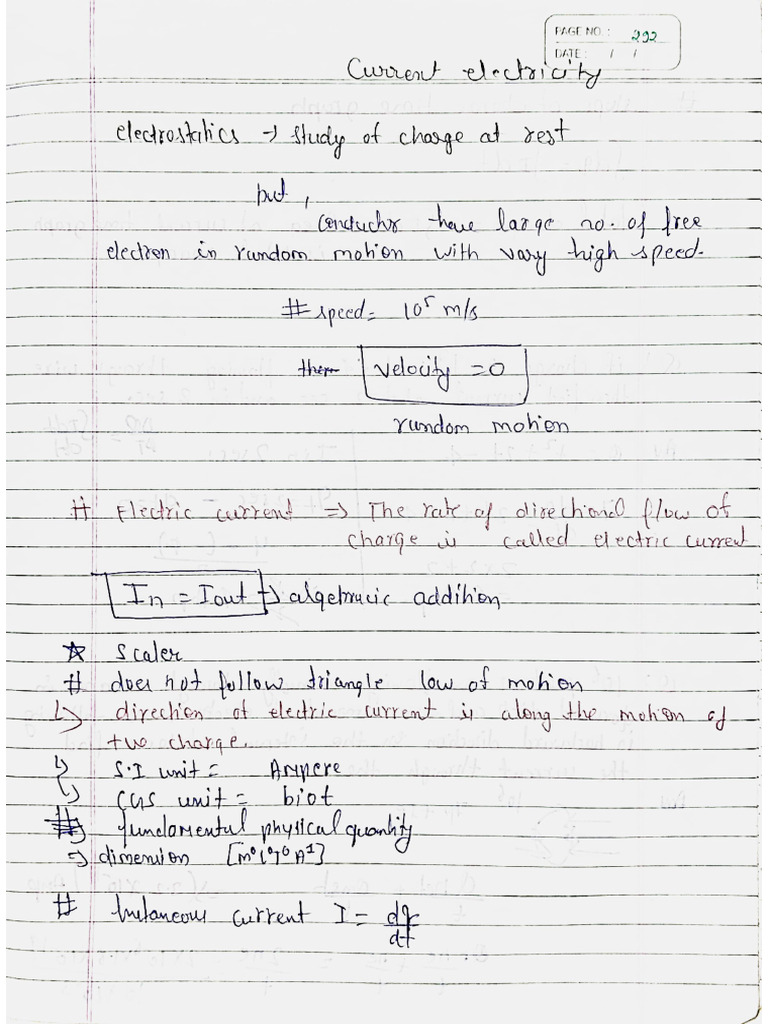 PAGE NO. : 292
DATE : / /
Current electricity
electrostatics → study of charge at rest
but,
conductor have large no. of free
electron in random motion with vary high speed.
# speed = 10⁵ m/s
velocity = 0
random motion
# Electric current ⇒ The rate of directional flow of
charge is called electric current
In = Iout → algebraic addition
☆ Scaler
# does not follow triangle low of motion
↳ direction of electric current is along the motion of
tve charge.
↳ S.I unit = Ampere
↳ CGS unit = biot
⇒ fundamental physical quantity
⇒ dimension [M⁰L⁰T⁰A¹]
# Instaneous current I = dq/dt